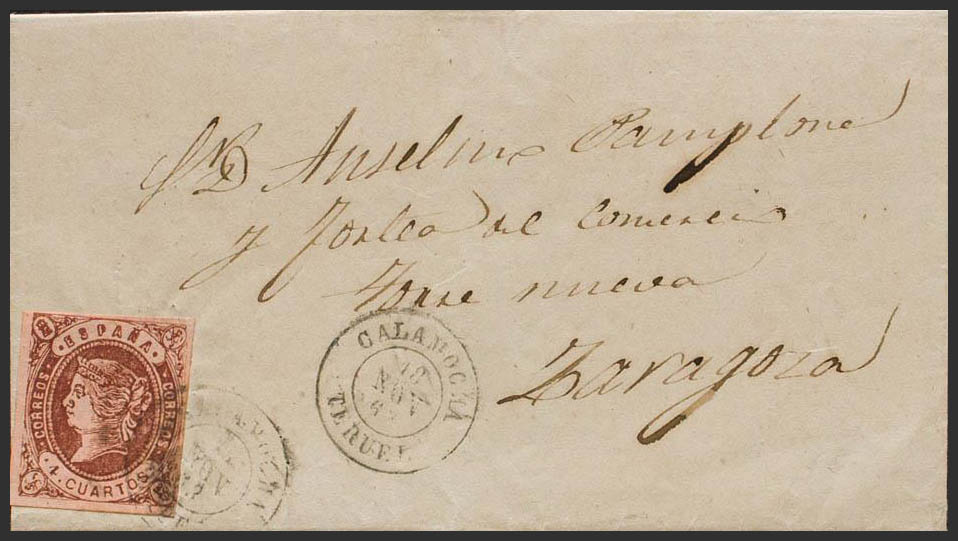 Sr D Anselmo Pamplona
y Jorlea del Comercio
Torre nueva
Zaragoza
CALAMOCHA
NOV
TERUEL
ESPAÑA
CORREOS
CORREOS
4 CUARTOS